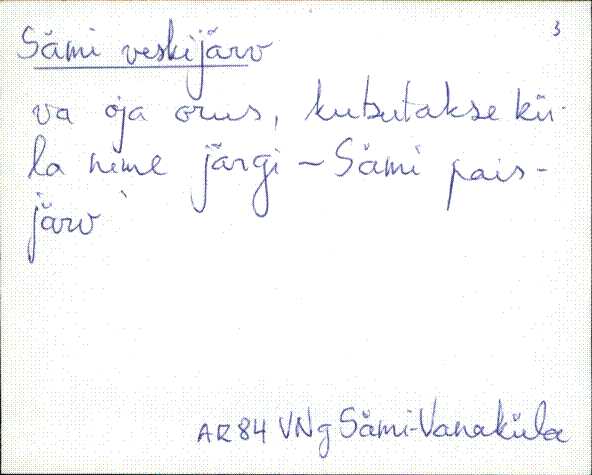 3
Sämi veskijärv
va oja orus, kutsutakse kü-
la nime järgi – Sämi pais-
järv
AR84 VNg Sämi-Vanaküla